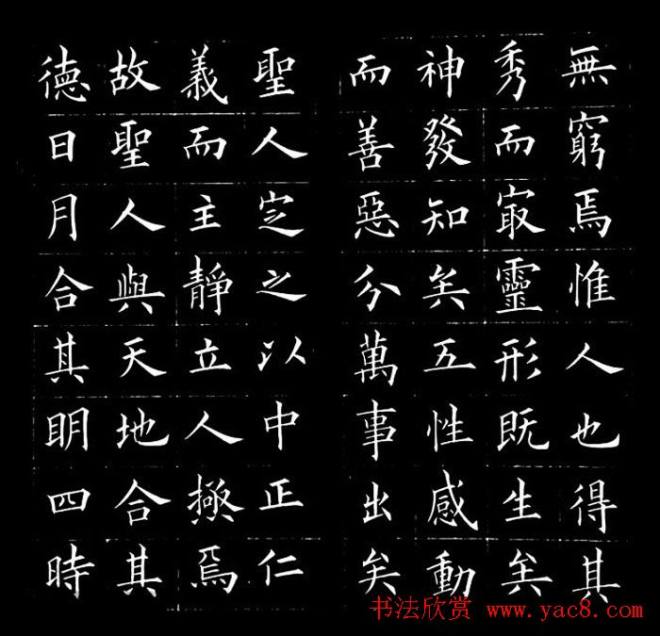 無窮焉惟人也得其
秀而㝡靈形既生矣
神發知矣五性感動
而善惡分萬事出矣
聖人定之以中正仁
義而主靜立人極焉
故聖人與天地合其
德日月合其明四時
书法欣赏 www.yac8.com